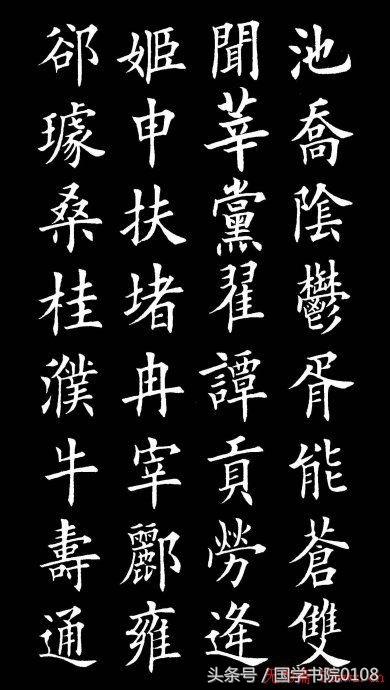 池喬陰鬱胥能蒼雙
聞莘黨翟譚貢勞逢
姬申扶堵冉宰酈雍
郤璩桑桂濮牛壽通
头条号 / 国学书院0108